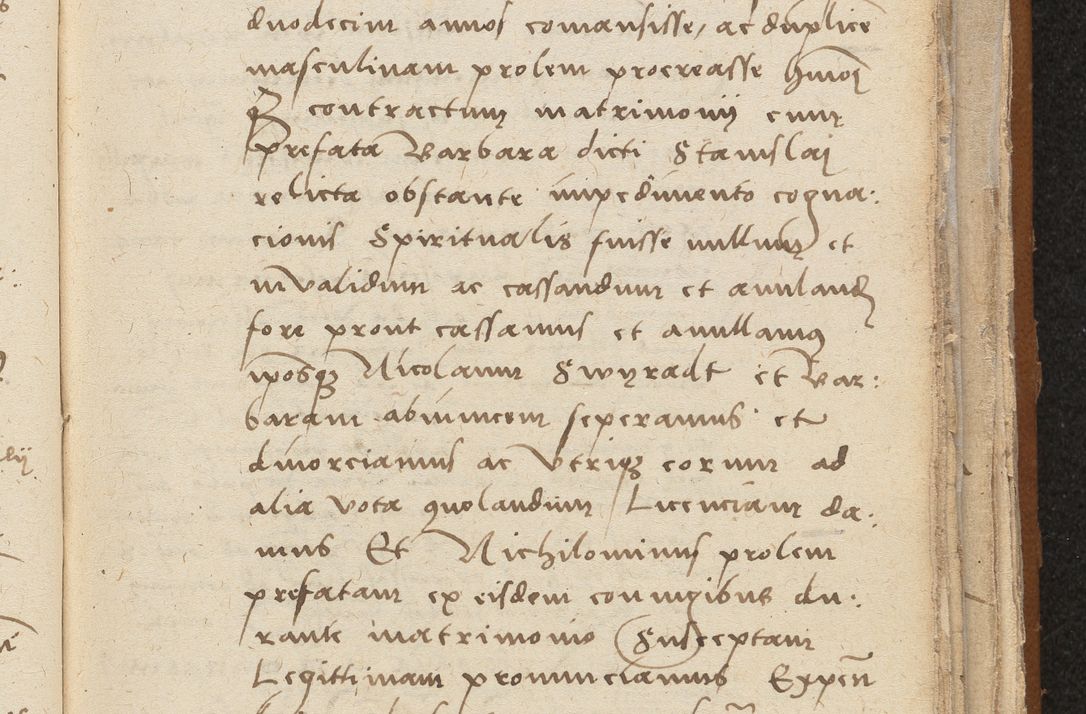 duodecim annos comansisse, ac duplicē
masculinam prolem procreasse hmōi
qȝ contractum matrimonij cum
prefata Barbara dicti Stanislai
relicta obstante impedimento cogna:
cionis Spiritualis fuisse nullum et
invalidum ac cassandum et annulandꝫ
fore prout cassamus et anullamus
ipōsqȝ Nicolaum Swyradt et Bar:
baram abinvicem seperamus et
divorciamus ac Utriqȝ eorum ad
alia vota 9volandum Licenciam da:
mus Et Nichilominus prolem
prefatam ex eisdem coniugibus du:
rante matrimonio Susceptam
Legittimam pronunciamus Expeñ